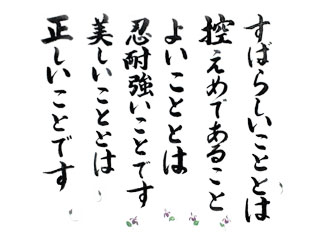 すばらしいこととは
控えめであること
よいこととは
忍耐強いことです
美しいこととは
正しいことです